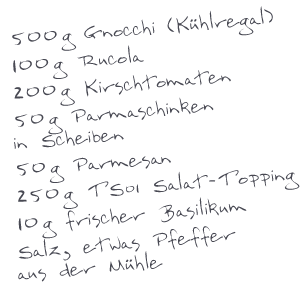 500g Gnocchi (Kühlregal)
100g Rucola
200g Kirschtomaten
50g Parmaschinken
in Scheiben
50g Parmesan
250g TSOI Salat-Topping
10g frischer Basilikum
Salz, etwas Pfeffer
aus der Mühle